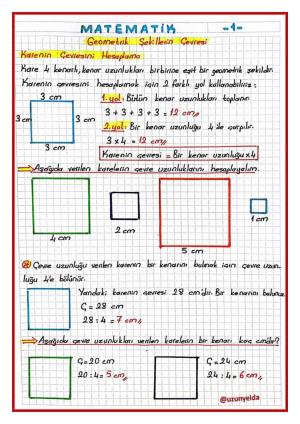 MATEMATİK -1-
Geometrik Şekillerin Çevresi
Karenin Çevresini Hesaplama
Kare 4 kenarlı, kenar uzunlukları birbirine eşit bir geometrik şekildir.
Karenin çevresini hesaplamak için 2 farklı yol kullanabiliriz:
3 cm
3 cm
3 cm
3 cm
1. yol: Bütün kenar uzunlukları toplanır.
3 + 3 + 3 + 3 = 12 cm
2. yol: Bir kenar uzunluğu 4 ile çarpılır.
3 x 4 = 12 cm
Karenin çevresi = Bir kenar uzunluğu x 4
Aşağıda verilen karelerin çevre uzunluklarını hesaplayalım.
4 cm
2 cm
5 cm
1 cm
Çevre uzunluğu verilen karenin bir kenarını bulmak için çevre uzun-
luğu 4'e bölünür.
Yandaki karenin çevresi 28 cm'dir. Bir kenarını bulunuz.
Ç = 28 cm
28 : 4 = 7 cm
Aşağıda çevre uzunlukları verilen karelerin bir kenarı kaç cm'dir?
Ç = 20 cm
20 : 4 = 5 cm
Ç = 24 cm
24 : 4 = 6 cm
@uzunyelda